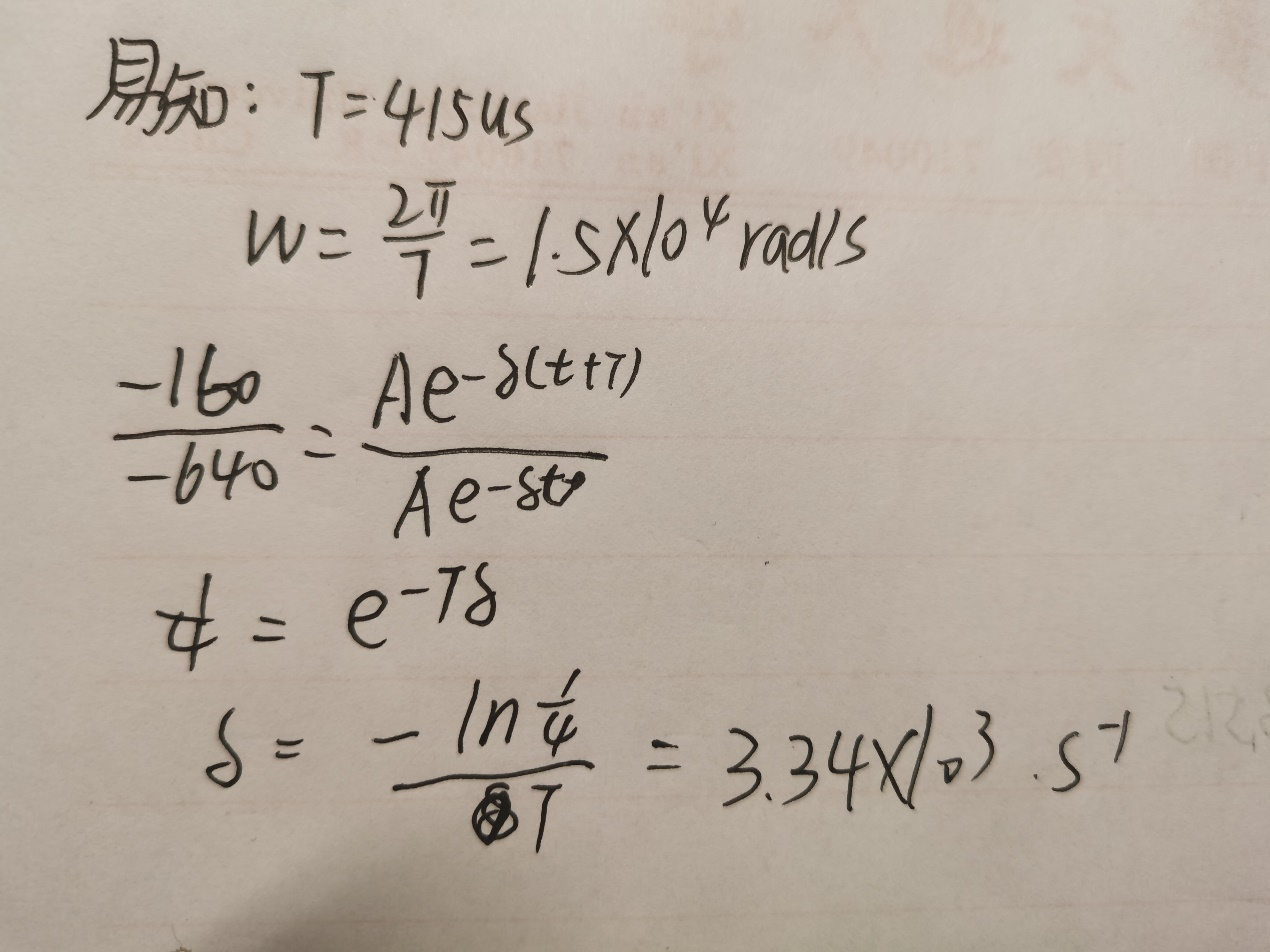 易知: T=415us
W = 2π/T = 1.5×10⁴ rad/s
-160/-640 = Ae^-δ(t+T)/Ae^-δt
1/4 = e^-Tδ
δ = -ln 1/4 / T = 3.34×10³ .s⁻¹